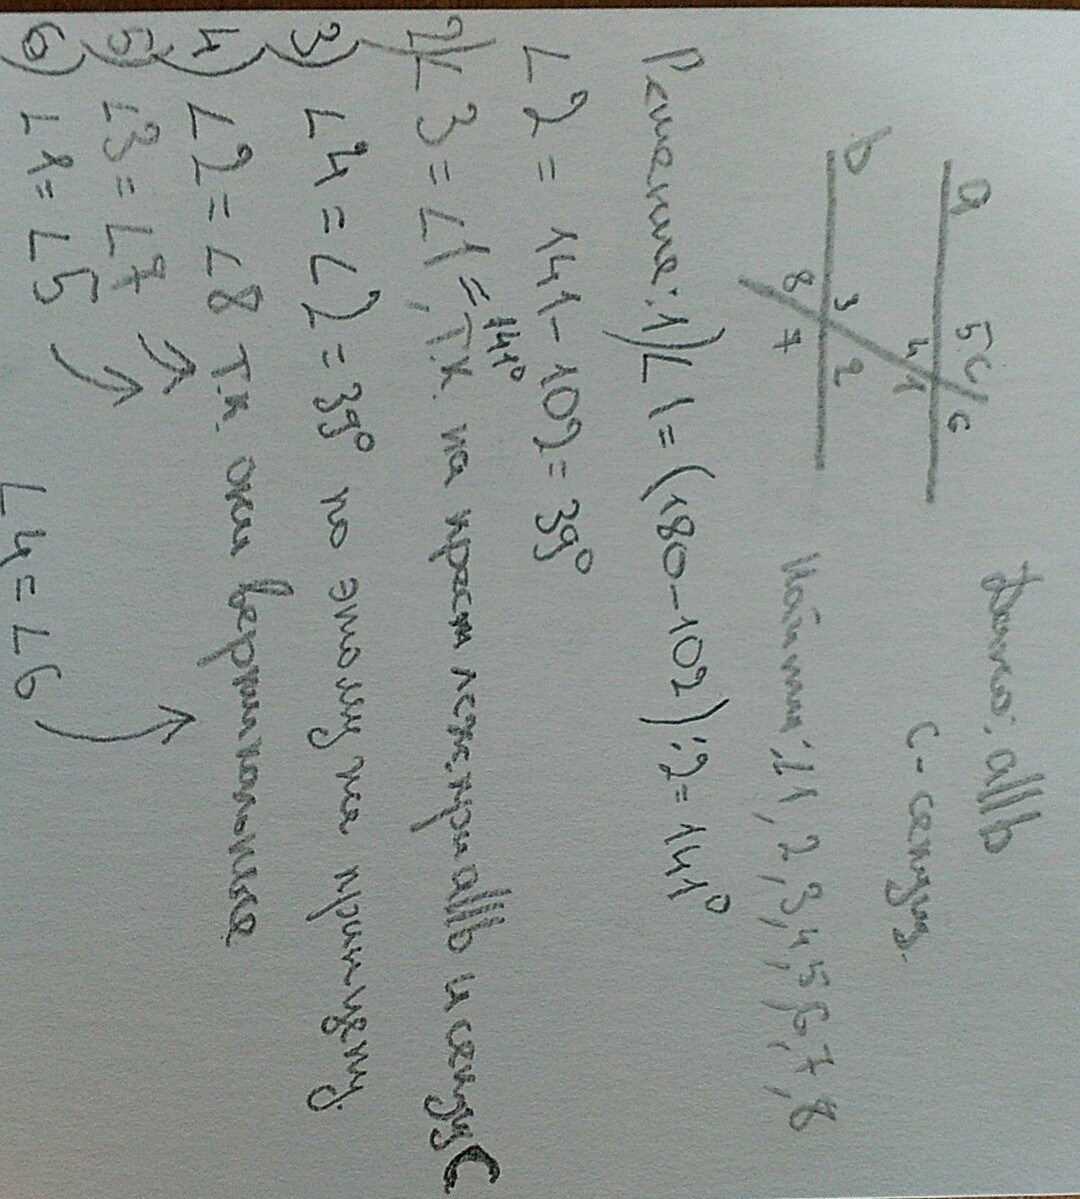 Дано: a||b
c - секущ.
Найти: ∠1, 2, 3, 4, 5, 6, 7, 8
a
5 c 6
4 1
b
3 2
8 7
Решение: 1) ∠1 = (180-102):2 = 141°
∠2 = 141-102 = 39°
2) ∠3 = ∠1 = 141°, т.к. на крест леж. при a||b и секущ c
3) ∠4 = ∠2 = 39° по этому же принципу
4) ∠2 = ∠8 т.к. они вертикальные
5) ∠3 = ∠7
6) ∠1 = ∠5
∠4 = ∠6